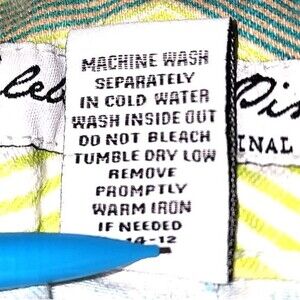 MACHINE WASH
SEPARATELY
IN COLD WATER
WASH INSIDE OUT
DO NOT BLEACH
TUMBLE DRY LOW
REMOVE
PROMPTLY
WARM IRON
IF NEEDED
14-12